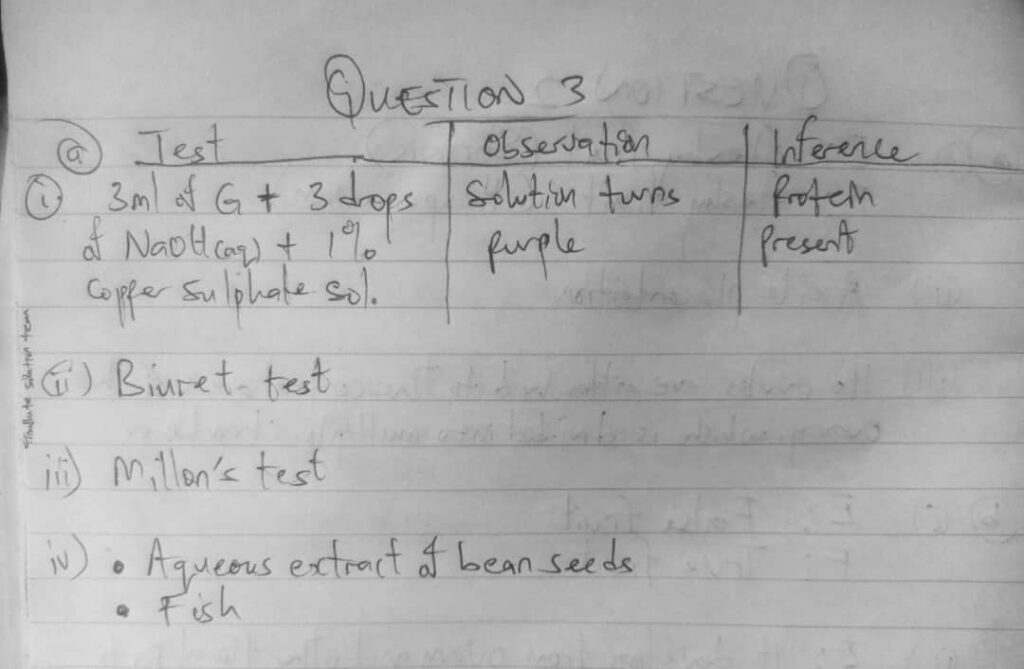 QUESTION 3
(a) Test Observation Inference
(i) 3ml of G + 3 drops Solution turns Protein
of NaOH(aq) + 1% purple present
Copper sulphate sol.
(ii) Biuret test
iii) Millon's test
iv) • Aqueous extract of bean seeds
• Fish